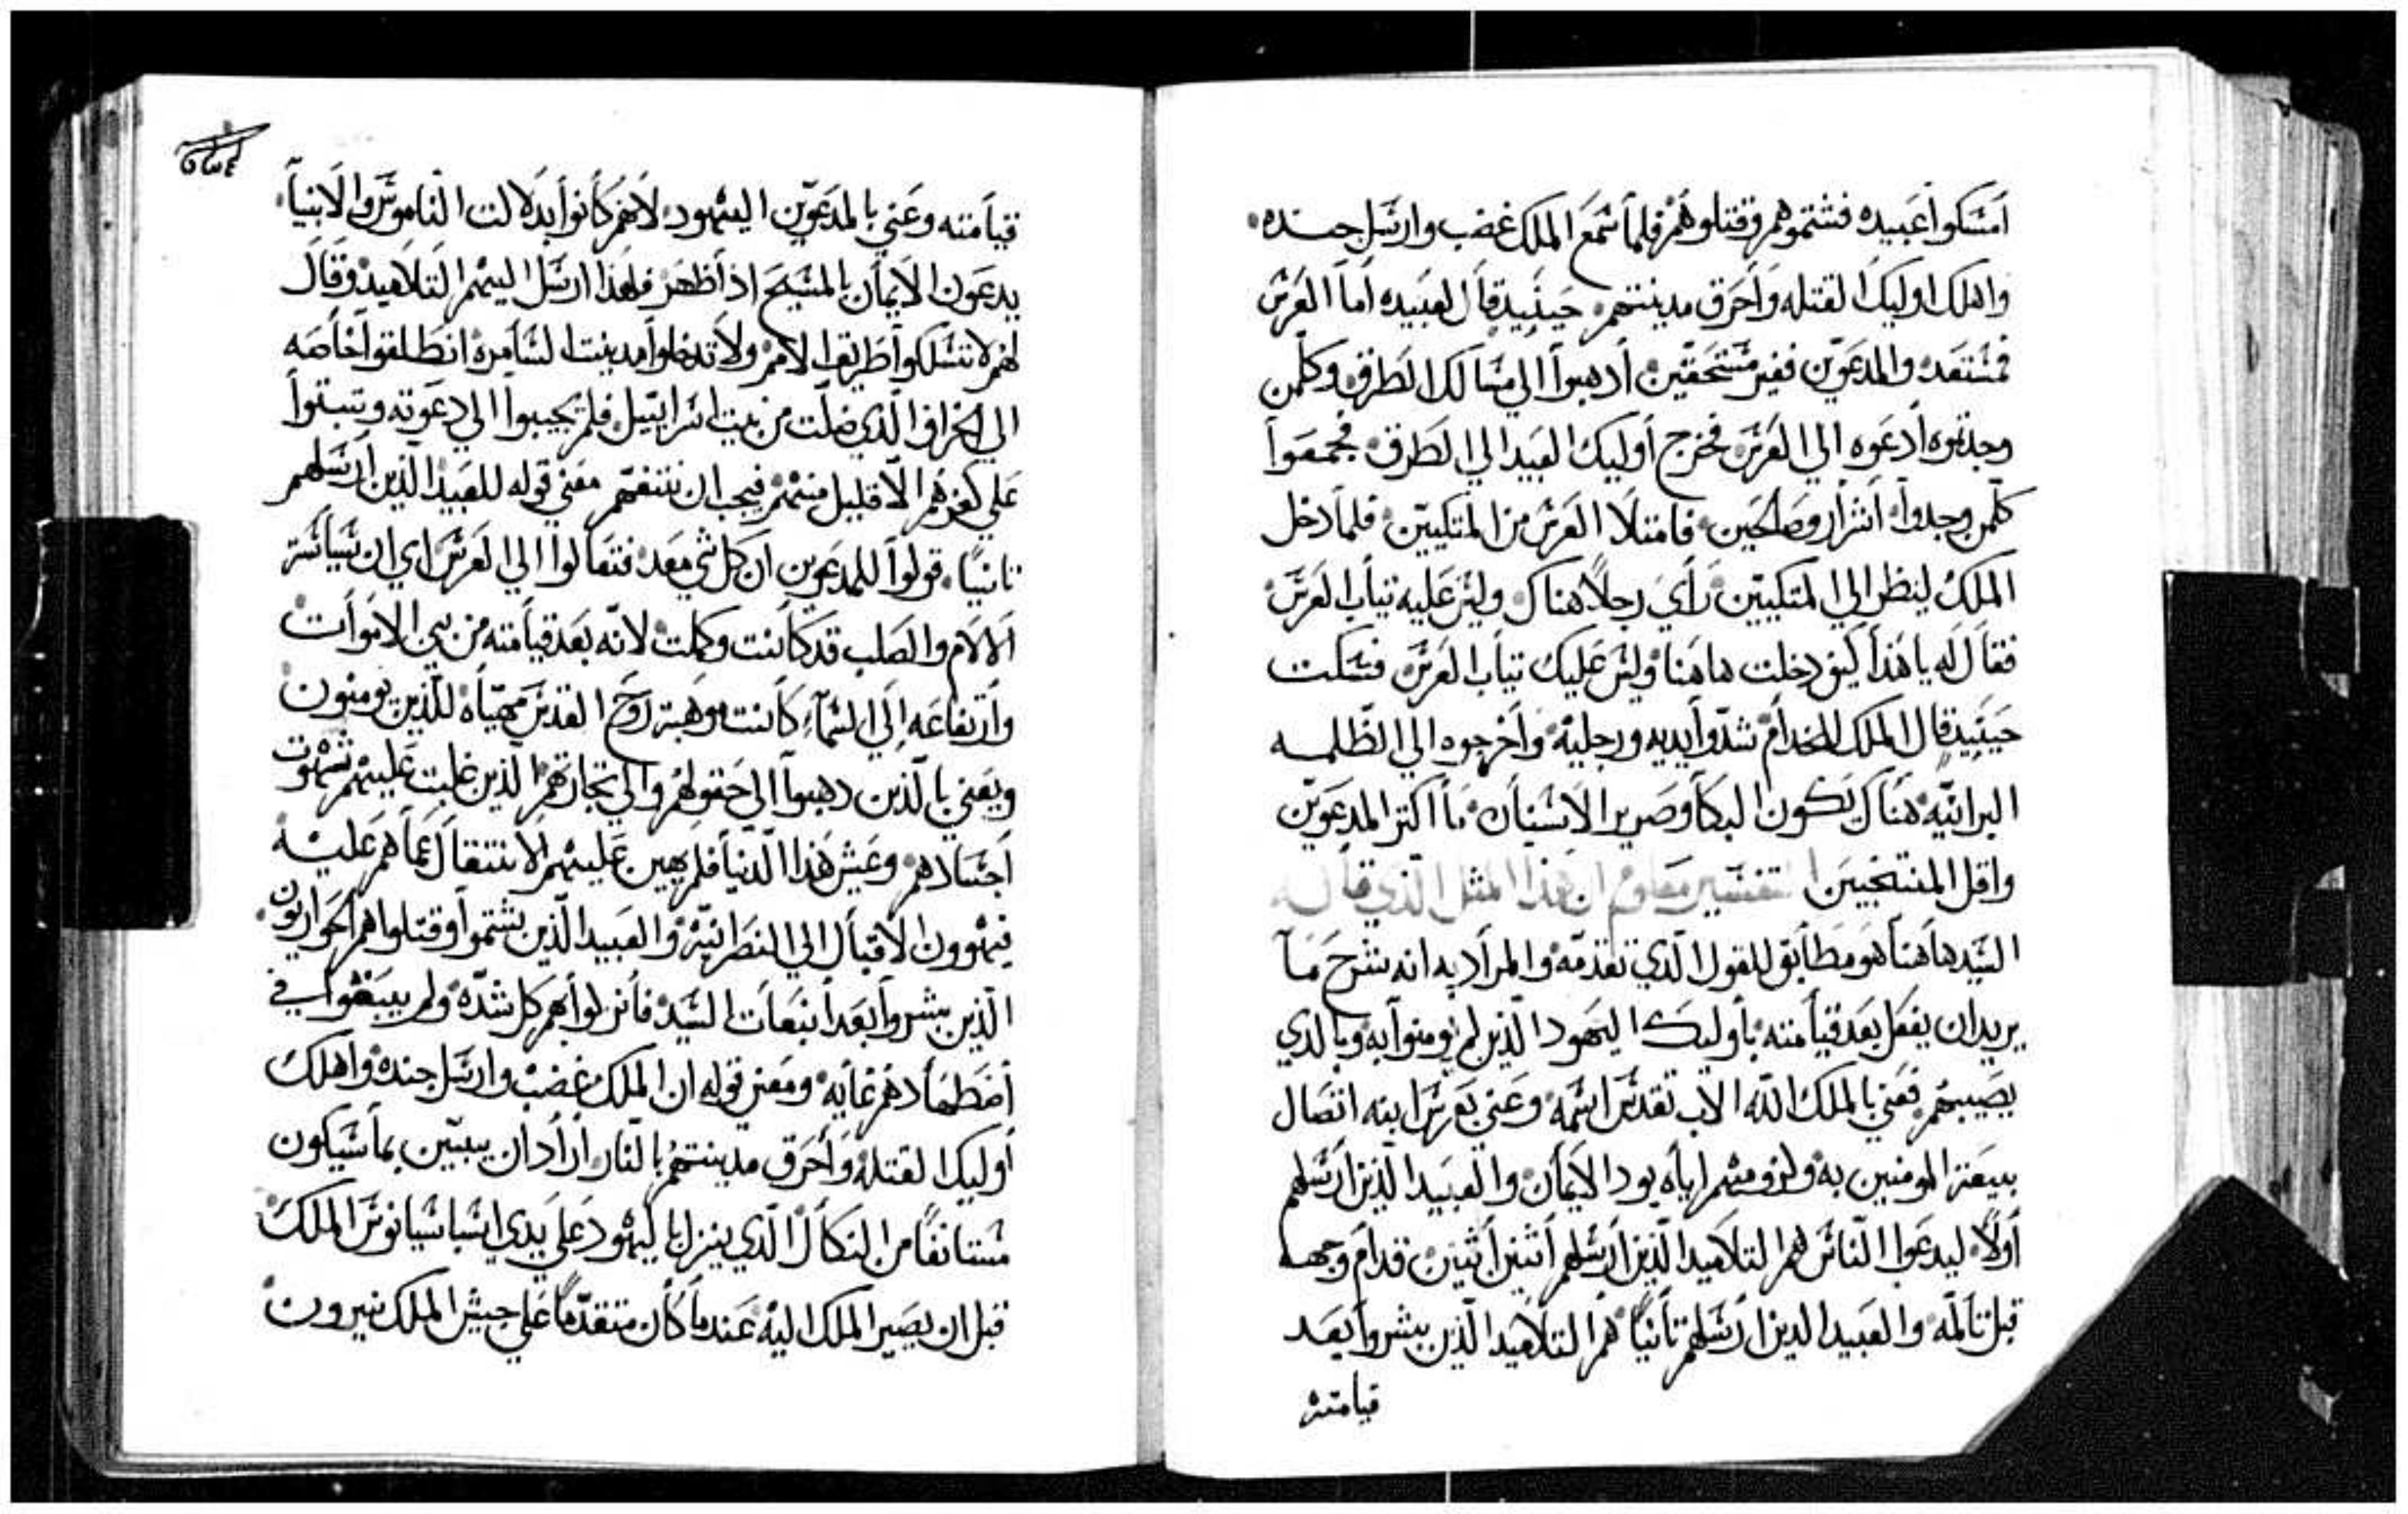 امسكوا عبيده فشتموهم وقتلوهم فلما سمع الملك غضب وارسل جنده
واهلك اوليك القتله واحرق مدينتهم حينيد قال لعبيده اما العرس
فمستعد والمدعوين فغير مستحقين ادهبوا الي مسالك الطرق وكلمن
وجدتموه ادعوه الي العرس فخرج اوليك العبيد الي الطرق فجمعوا
كلمن وجدوا اشرار وصالحين فامتلا العرس من المتكيين فلما دخل
الملك لينظر الي المتكيين راي رجلا هناك وليس عليه تياب العرس
فقال له يا هذا كيف دخلت هاهنا وليس عليك تياب العرس فسكت
حينيد قال الملك للخدام شدوا ايديه ورجليه واخرجوه الي الظلمه
البرانيه هناك تكون البكا وصرير الاسنان ما اكتر المدعوين
واقل المنتخبين التفسير معلوم ان هذا المثل الذي قاله
السيد هاهنا هو مطابق للقول الذي تقدمه والمراد به انه شرح ما
يريد ان يفعل بعد قيامته باوليك اليهود الذين لم يومنوا به وبالدي
يصيبهم فعني بالملك الله الاب تقدس اسمه وعني بعرس ابنه اتصال
بيعة المومنين به ولزومهم اياه بود الايمان والعبيد الذين ارسلهم
اولا ليدعوا الناس هم التلاميد الذين ارسلهم اثنين اثنين قدام وجهه
قبل تالمه والعبيد الدين ارسلهم تانيا هم التلاميد الذين بشروا بعد
قيامته
قيامته وعني بالمدعوين اليهود لانهم كانوا بدلالت الناموس والانبيا
يدعون الايمان بالمسيح اذ اظهر فلهذا ارسل اليهم التلاميد وقال
لهم لا تسلكوا طريق الامم ولا تدخلوا مدينت السامره انطلقوا خاصه
الي الخراف الذي ضلت من بيت اسراييل فلم يجيبوا الي دعوته وتبتوا
علي كفرهم الا قليل منهم فيجب ان نتفهم معني قوله للعبيد الذين ارسلهم
تانيا قولوا للمدعوين ان كل شي معد فتعالوا الي العرس اي ان سياسة
الالام والصلب قد كانت وكملت لانه بعد قيامته من بين الاموات
وارتفاعه الي السماء كانت وهبة روح القدس مهياه للذين يومنون
ويعني بالذين دهبوا الي حقولهم والي تجارتهم الذين غلبت عليهم شهوت
اجسادهم وعيش هذا الدنيا فلم يهين عليهم الانتقال عما هم عليه
فيهوون الاقبال الي النصرانية والعبيد الذين شتموا وقتلوا هم الحواريون
الذين بشروا بعد انبعات السيد فانزلوا بهم كل شده ولم يبقوا في
اضطهادهم غايه ومعني قوله ان الملك غضب وارسل جنده واهلك
اوليك القتله واحرق مدينتهم بالنار اراد ان يبين بما سيكون
مستانفا من النكال الذي ينزل باليهود علي يدي اسباسيانوس الملك
قبل ان يصير الملك اليه عندما كان متقدما علي جيش الملك نيرون